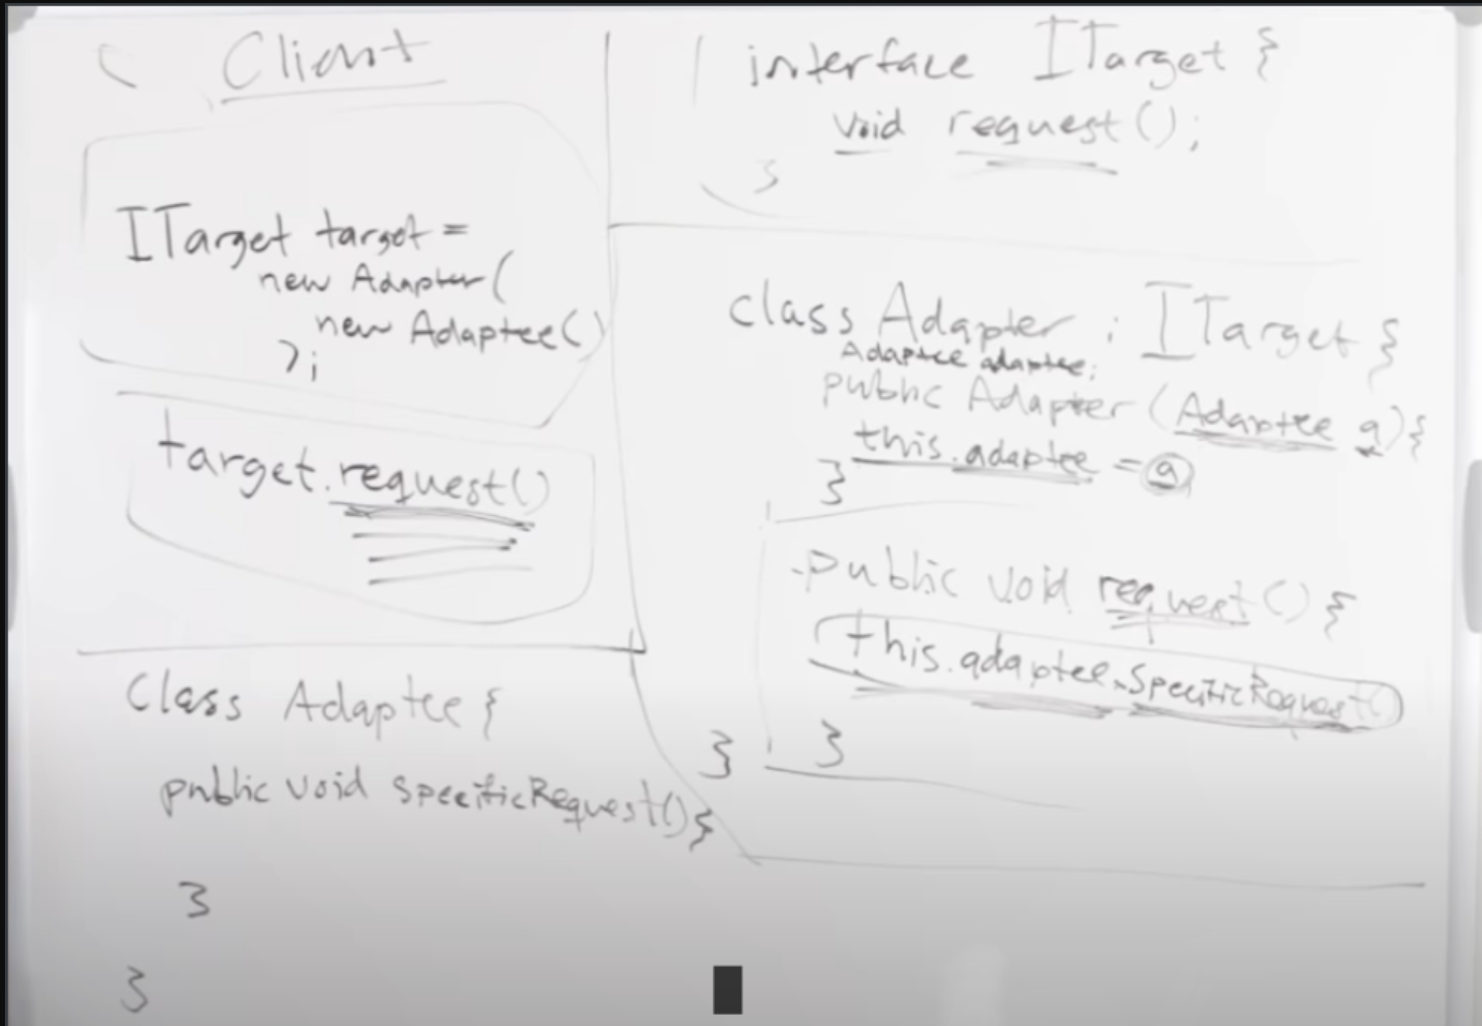 Client
ITarget target =
new Adapter(
new Adaptee()
);
target.request()
class Adaptee {
public void specificRequest(){
}
}
interface ITarget {
void request();
}
class Adapter : ITarget {
Adaptee adaptee;
public Adapter (Adaptee a){
this.adaptee = a
}
public void request() {
this.adaptee.specificRequest()
}
}